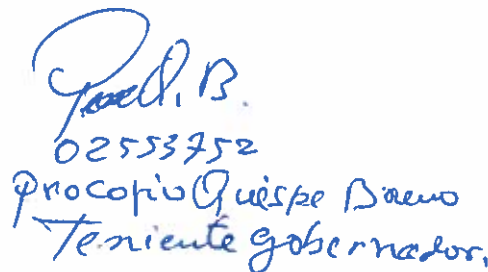 02553752
Procopio Quispe
Teniente gobernador.